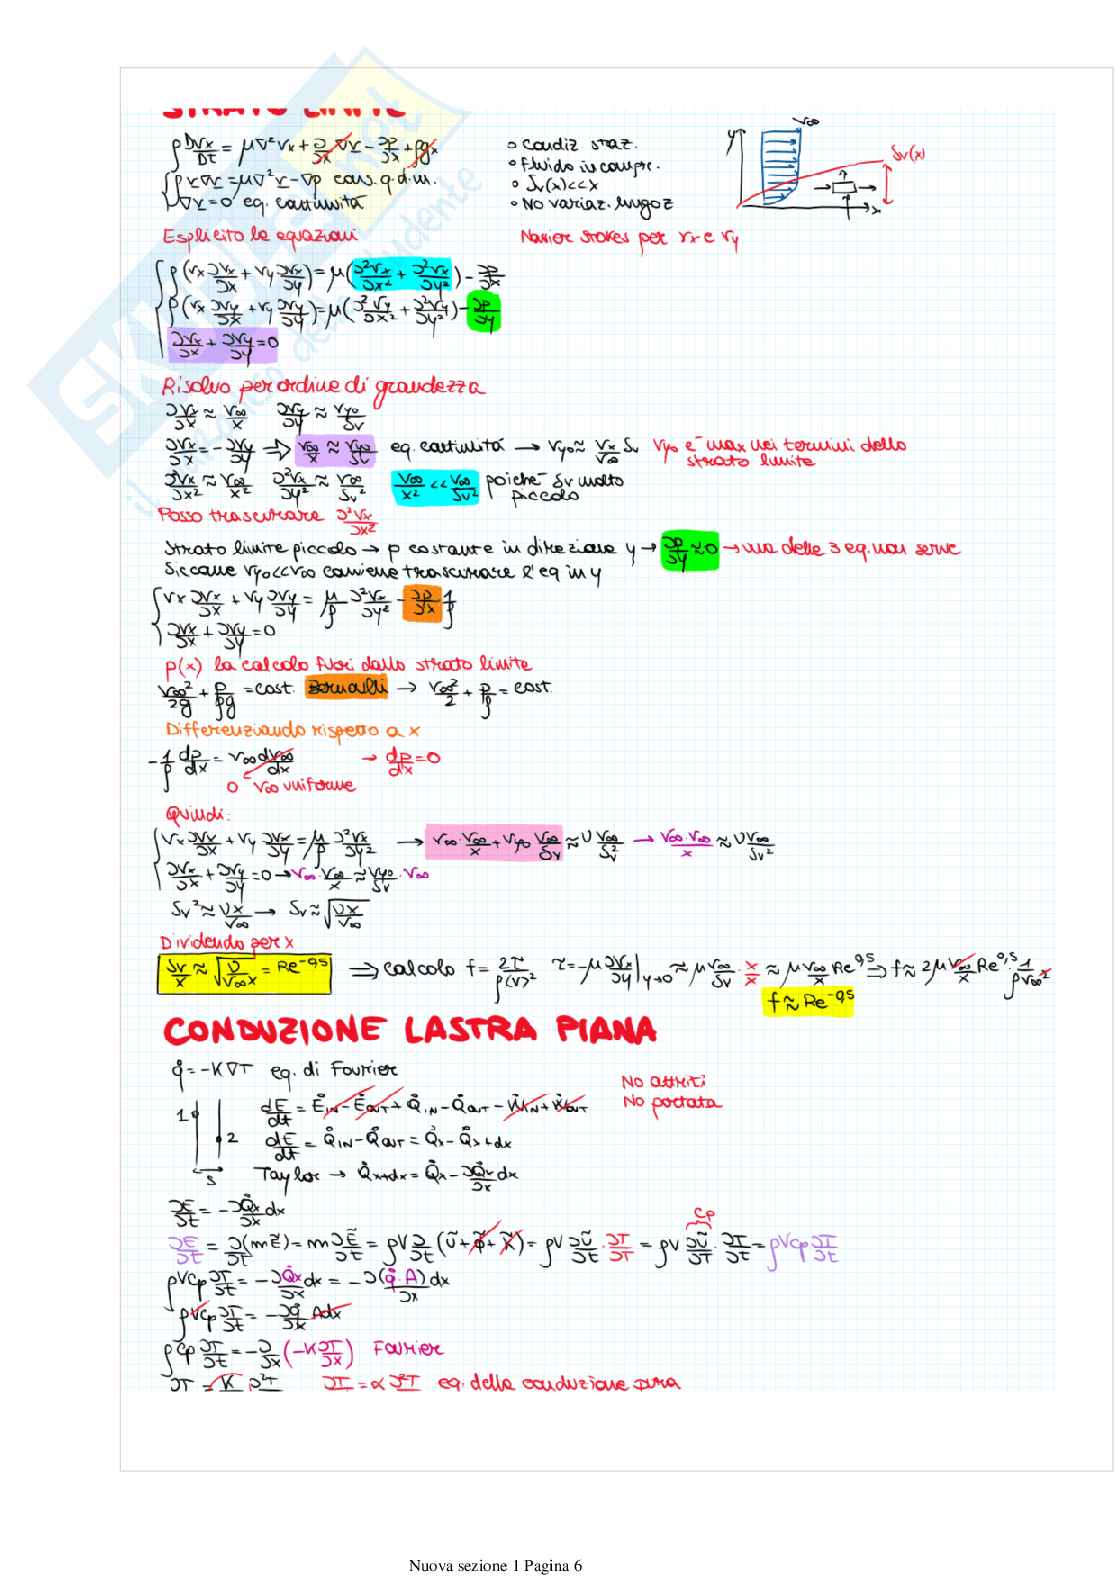 STRATO LIMITE
ρ DVx/Dt = μ∇²Vx + ∂/∂x ∇v - ∂p/∂x + ρgx
ρ v∇v = μ∇²v - ∇p cons. q.d.m.
μ∇v = 0 eq. continuità
• Condiz staz.
• Fluido incompr.
• δv(x)<<x
• No variaz. lungo z
y
V∞
δv(x)
x
Esplicito le equazioni
Navier Stokes per vx e vy
ρ(vx ∂vx/∂x + vy ∂vx/∂y) = μ(∂²vx/∂x² + ∂²vx/∂y²) - ∂p/∂x
ρ(vx ∂vy/∂x + vy ∂vy/∂y) = μ(∂²vy/∂x² + ∂²vy/∂y²) - ∂p/∂y
∂vx/∂x + ∂vy/∂y = 0
Risolvo per ordine di grandezza
∂vx/∂x ≈ v∞/x ∂vy/∂y ≈ vy0/δv
∂vx/∂x = - ∂vy/∂y ⇒ v∞/x ≈ vy0/δv eq. continuità → vy0 ≈ vx/v∞ δv vy0 è max nei termini dello strato limite
∂²vx/∂x² ≈ v∞/x² ∂²vx/∂y² ≈ v∞/δv² v∞/x² << v∞/δv² poiché δv molto piccolo
Posso trascurare ∂²vx/∂x²
Strato limite piccolo → p costante in direzione y → ∂p/∂y ≈ 0 → una delle 3 eq. non serve
Siccome vy0<<v∞ conviene trascurare l'eq in y
vx ∂vx/∂x + vy ∂vy/∂y = μ/ρ ∂²vx/∂y² - ∂p/∂x 1/ρ
∂vx/∂x + ∂vy/∂y = 0
p(x) la calcolo fuori dallo strato limite
v∞²/2g + p/ρg = cost. Bernoulli → v∞²/2 + p/ρ = cost
Differenziando rispetto a x
-1/ρ dp/dx = v∞ dv∞/dx → dp/dx = 0
0 v∞ uniforme
Quindi:
vx ∂vx/∂x + vy ∂vx/∂y = μ/ρ ∂²vx/∂y² → v∞·v∞/x + vy0 v∞/δv ≈ ν v∞/δv² → v∞·v∞/x ≈ ν v∞/δv²
∂vx/∂x + ∂vy/∂y = 0 → v∞·v∞/x ≈ vy0/δv·v∞
δv² ≈ νx/v∞ → δv ≈ √νx/v∞
Dividendo per x
δv/x ≈ √ν/v∞x = Re^-0,5 ⇒ calcolo f = 2τ/ρ(v)² τ = -μ ∂vx/∂y|y→0 ≈ μ v∞/δv · x/x ≈ μ v∞/x Re^0,5 ⇒ f ≈ 2μ v∞/x Re^0,5 · 1/ρv∞²
f ≈ Re^-0,5
CONDUZIONE LASTRA PIANA
q̇ = -K∇T eq. di Fourier
No attriti
No portata
1
2
s
dE/dt = ĖIN - ĖOUT + Q̇IN - Q̇OUT - ẆIN + ẆOUT
dE/dt = Q̇IN - Q̇OUT = Q̇x - Q̇x+dx
Taylor → Q̇x+dx = Q̇x - ∂Q̇x/∂x dx
∂E/∂t = - ∂Q̇x/∂x dx
∂E/∂t = ∂(mẼ)/∂t = m ∂Ẽ/∂t = ρV ∂/∂t (Ũ + φ̃ + K̃) = ρV ∂Ũ/∂t · ∂T/∂T = ρV ∂Ũ/∂T · ∂T/∂t = ρVcp ∂T/∂t
cp
ρVcp ∂T/∂t = - ∂Q̇x/∂x dx = - ∂(q̇·A)/∂x dx
ρVcp ∂T/∂t = - ∂q̇/∂x Adx
ρcp ∂T/∂t = - ∂/∂x (-K ∂T/∂x) Fourier
∂T = K ∂²T ∂T = α ∂²T eq. della conduzione pura
Nuova sezione 1 Pagina 6